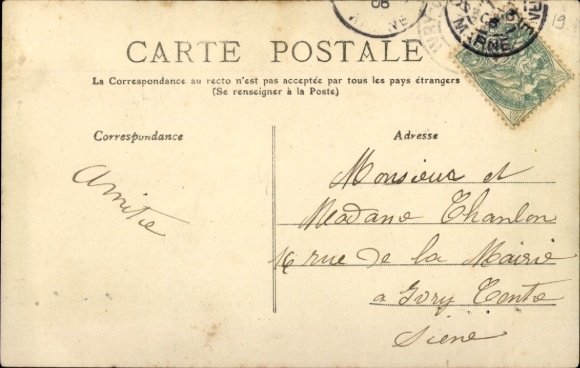 06
NE
MARNE
19
CARTE POSTALE
La Correspondance au recto n'est pas acceptée par tous les pays étrangers
(Se renseigner à la Poste)
Correspondance
Adresse
Amitie
Monsieur et
Madame Chanlon
16 rue de la Mairie
a Ivry Cente
Siene